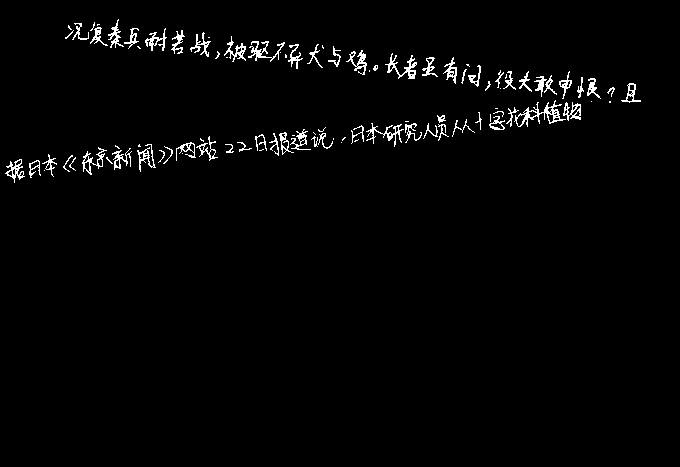 况复秦兵耐苦战，被驱不异犬与鸡。长者虽有问，役夫敢申恨？且
据日本《东京新闻》网站22日报道说，日本研究人员从十字花科植物